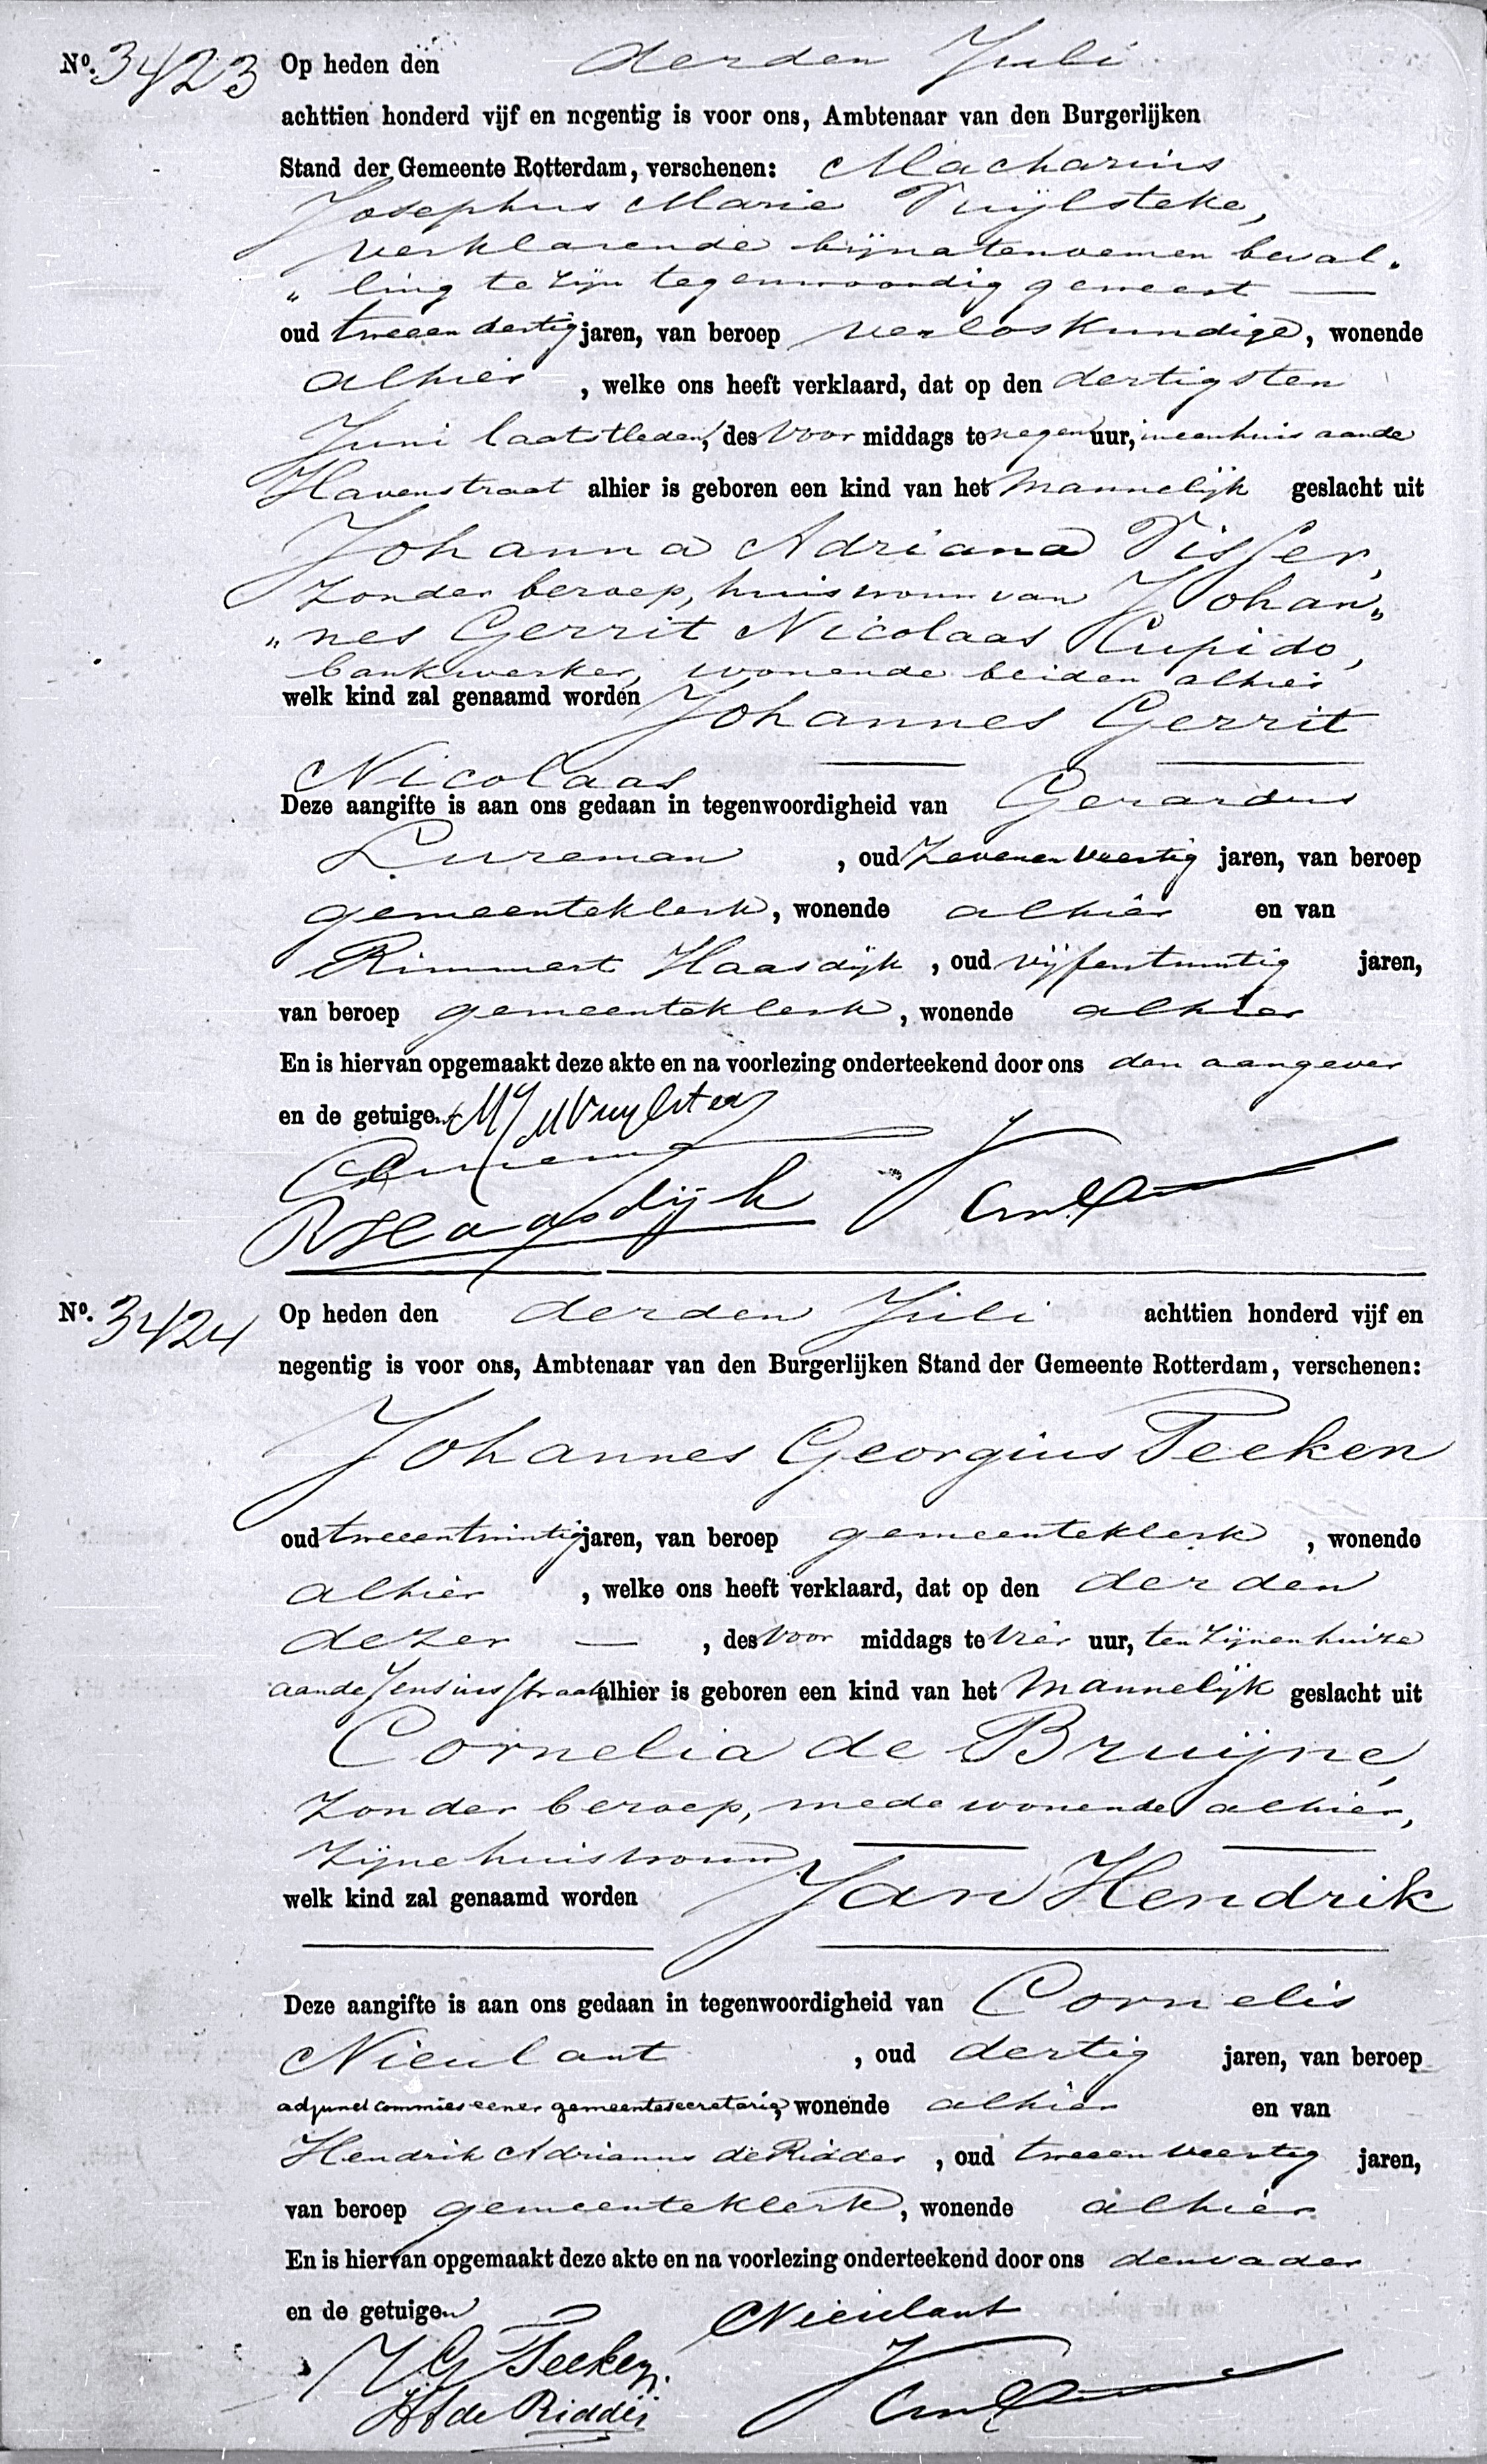 No. 3423 Op heden den derden Juli
achttien honderd vijf en negentig is voor ons, Ambtenaar van den Burgerlijken
Stand der Gemeente Rotterdam, verschenen: Macharius
Josephus Marie Vuijlsteke,
verklarende bij na te noemen beval„
„ling te zijn tegenwoordig geweest —
oud tweeen dertig jaren, van beroep verloskundige, wonende
alhier, welke ons heeft verklaard, dat op den dertigsten
Juni laatstleden, des voor middags te negen uur, in een huis aan de
Havenstraat alhier is geboren een kind van het mannelijk geslacht uit
Johanna Adriana Visser,
zonder beroep, huisvrouw van Johan„
„nes Gerrit Nicolaas Cupido,
bankwerker, wonende beiden alhier
welk kind zal genaamd worden Johannes Gerrit
Nicolaas
Deze aangifte is aan ons gedaan in tegenwoordigheid van Gerardus
Lureman, oud zevenen veertig jaren, van beroep
gemeenteklerk, wonende alhier en van
Rimmert Haasdijk, oud vijfentwintig jaren,
van beroep gemeenteklerk, wonende alhier
En is hiervan opgemaakt deze akte en na voorlezing onderteekend door ons den aangever
en de getuigen MJM Vuylsteke
R Haasdijk
No. 3424 Op heden den derden Juli achttien honderd vijf en
negentig is voor ons, Ambtenaar van den Burgerlijken Stand der Gemeente Rotterdam, verschenen:
Johannes Georgius Teeken
oud tweeentwintig jaren, van beroep gemeenteklerk, wonende
alhier, welke ons heeft verklaard, dat op den derden
dezer —, des voor middags te vier uur, ten zijnen huize
aan de Jensiusstraat alhier is geboren een kind van het mannelijk geslacht uit
Cornelia de Bruijne,
zonder beroep, mede wonende alhier,
zijne huisvrouw
welk kind zal genaamd worden Jan Hendrik
Deze aangifte is aan ons gedaan in tegenwoordigheid van Cornelis
Nieulant, oud dertig jaren, van beroep
adjunct commies eener gemeentesecretarie, wonende alhier en van
Hendrik Adrianus de Ridder, oud tweeen veertig jaren,
van beroep gemeenteklerk, wonende alhier
En is hiervan opgemaakt deze akte en na voorlezing onderteekend door ons den vader
en de getuigen CNieulant
JG Teeken.
HA de Ridder